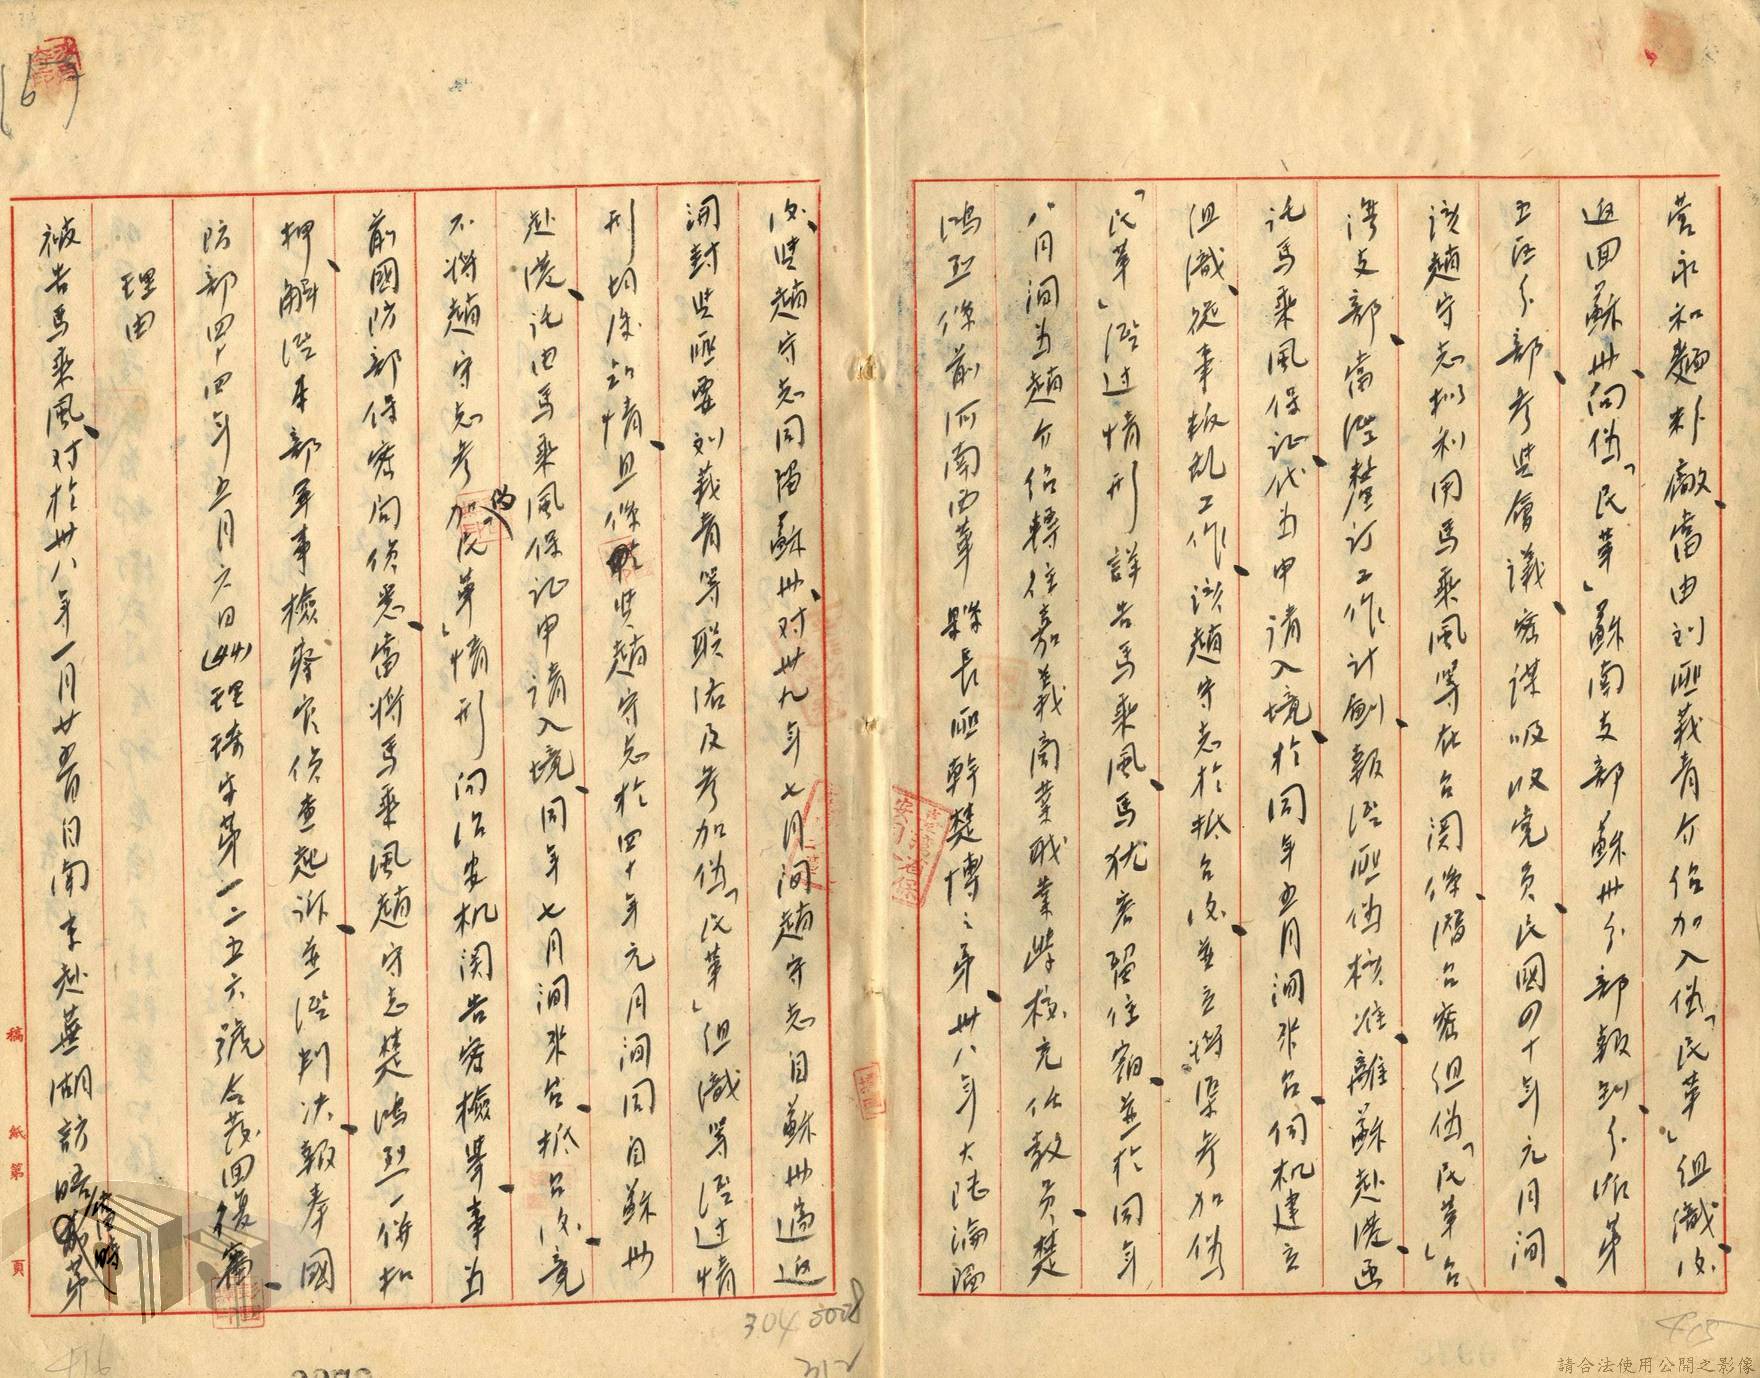 營永和麵粉廠當由刘熙莪青介绍加入偽「民革」组織後
返回蘇州向偽「民革」蘇南支部蘇州分部報到分派第
五區分部考其會議密謀吸收党員民國四十年元月間
該趙守志拟利用馬乘風等在台関係潛台密组偽「民革」台
湾支部當經整订工作计劃報經熙偽核准離蘇赴港函
託馬乘風保证代为申请入境於同年五月间来台伺机建立
组織從事叛乱工作該趙守志於抵台後並立將渠参加偽
「民革」經过情形詳告馬乘風馬犹容留住宿並於同年
八月间为趙介绍轉往嘉義商業职業學校充任教員楚
鴻烈係前河南西華縣長熙幹楚博之弟卅八年大陸淪陷
後與趙守志同留蘇州对卅九年七月间趙守志自蘇州潘返
開封與熙雯刘莪青等联络及参加偽「民革」组織等經过情
形均深知情且係與趙守志於四十年元月间同自蘇州
赴港託由馬乘風保证申请入境同年七月间来台抵台後竟
不將趙守志参加偽「民革」情形向治安机関告密檢舉事为
前國防部保密局偵悉當將馬乘風趙守志楚鴻烈一併扣
押解經本部軍事檢察官偵查起诉並經判决報奉國
防部四十四年五月六日(44)理琦字第一二五六號令發回復審
理由
被告馬乘風对於卅八年一月廿五日自南京赴蕪湖訪晤當時第
稿紙第 頁
304
312
416
415
請合法使用公開之影像